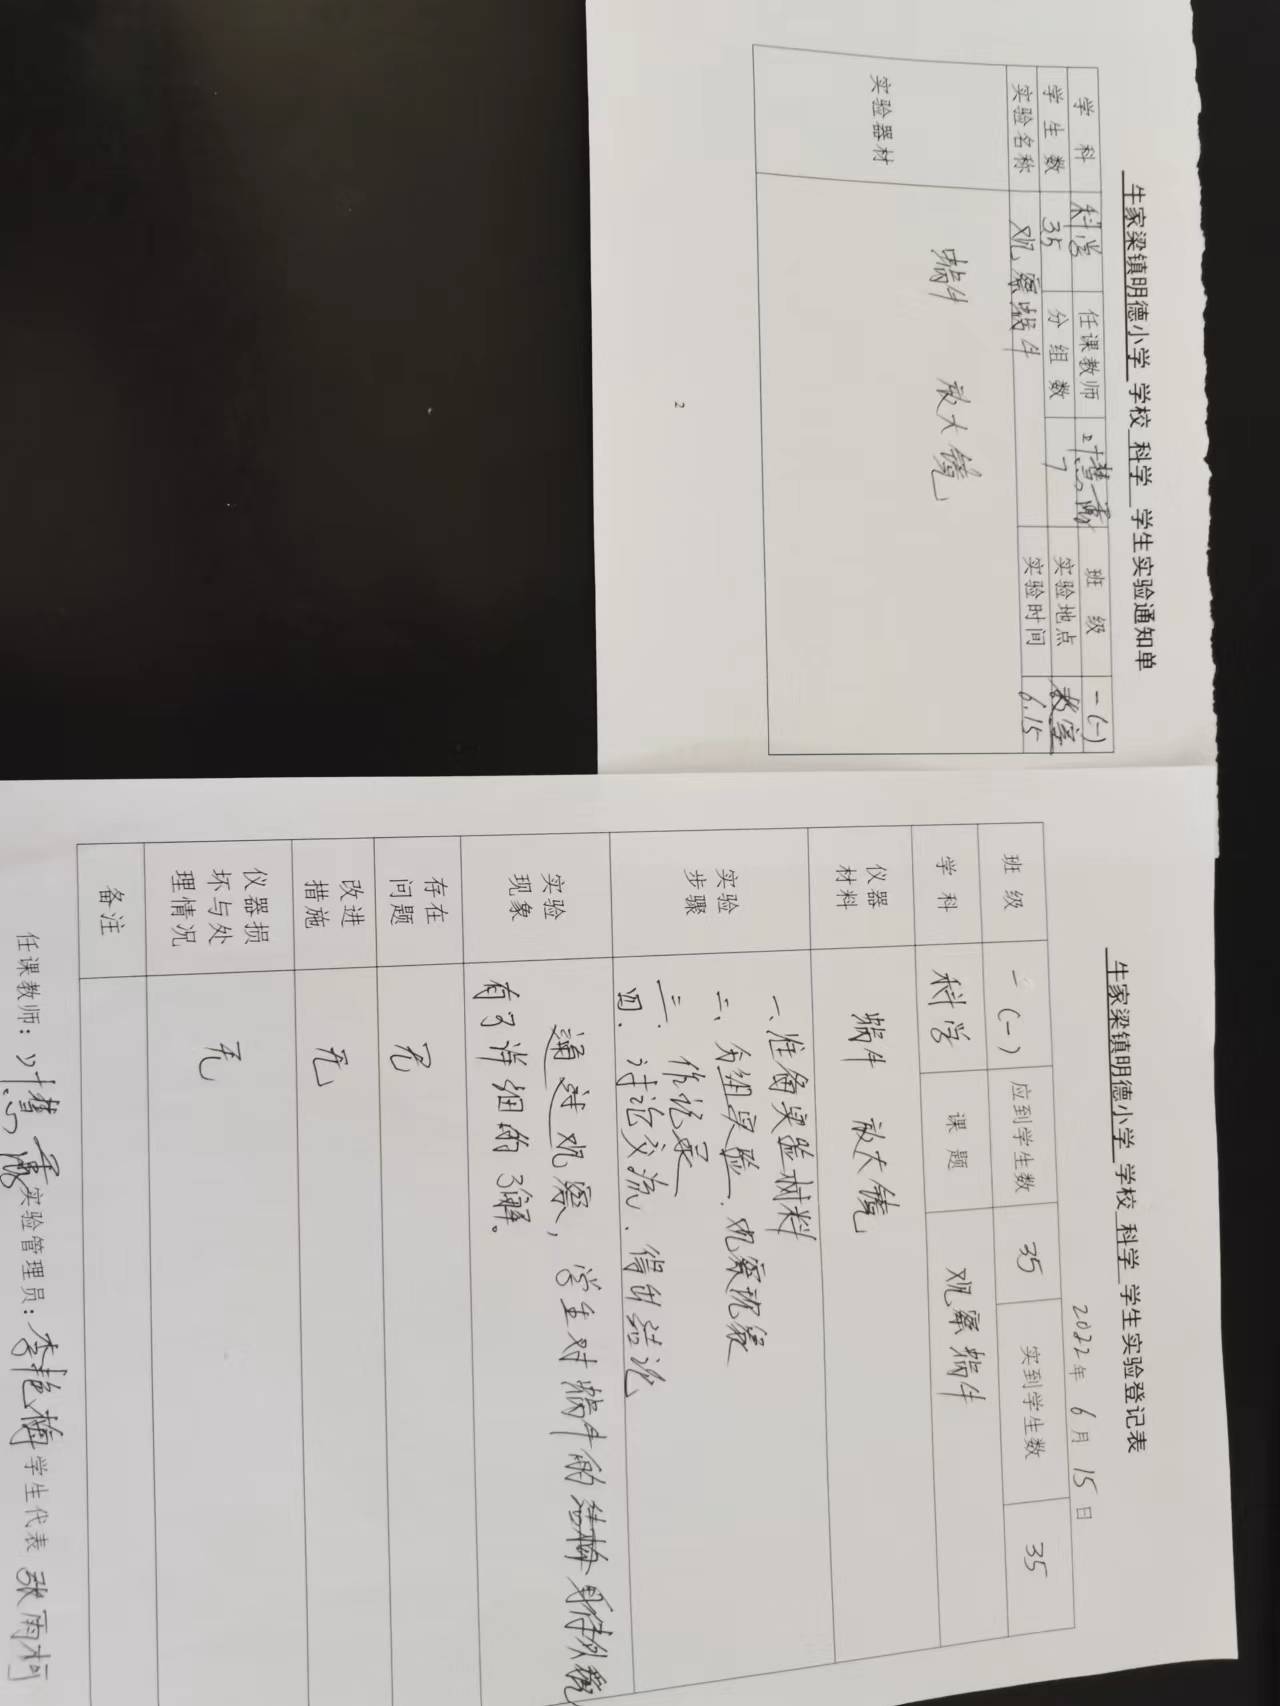 牛家梁镇明德小学 学校 科学 学生实验通知单
学 科 科学 任课教师 叶慧霞 班 级 一(一)
学 生 数 35 分 组 数 7 实验地点 教室
实验名称 观察蜗牛 实验时间 6.15
实验器材 蜗牛 放大镜
2
牛家梁镇明德小学 学校 科学 学生实验登记表
2022年 6月 15日
班 级 一(一) 应到学生数 35 实到学生数 35
学 科 科学 课 题 观察蜗牛
仪器材料 蜗牛 放大镜
实验步骤
一、准备实验材料
二、分组实验、观察现象
三、作记录
四、讨论交流、得出结论
实验现象
通过观察,学生对蜗牛的结构
有了详细的了解。
存在问题 无
改进措施 无
仪器损坏与处理情况 无
备注
任课教师: 叶慧霞 实验管理员: 李艳梅 学生代表 张雨柯